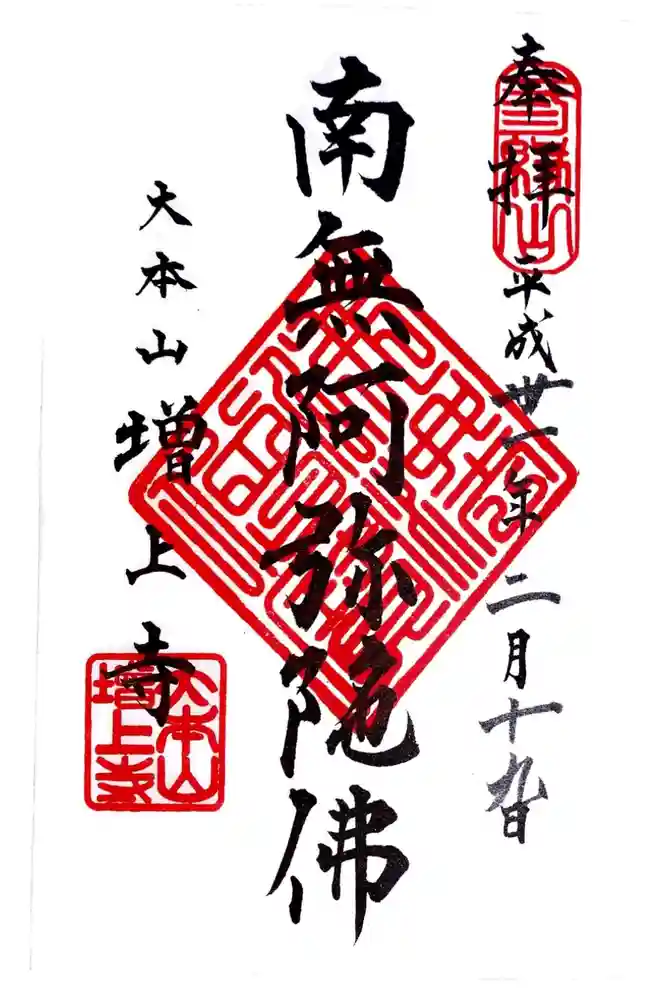 奉拝
平成卅一年二月十九日
南無阿弥陀佛
大本山増上寺
大本山
増上寺